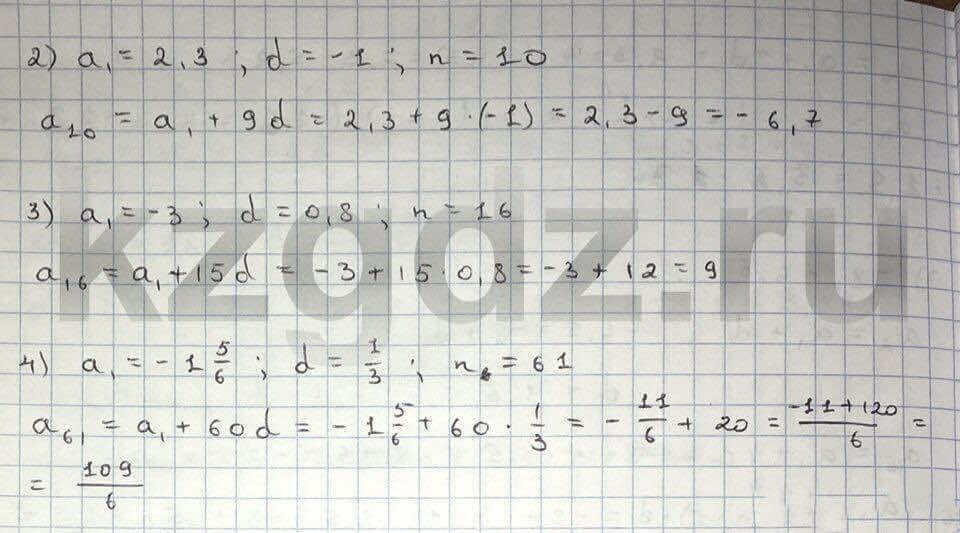 2) a₁ = 2,3 ; d = -1 ; n = 10
a₁₀ = a₁ + 9d = 2,3 + 9 · (-1) = 2,3 - 9 = - 6,7
3) a₁ = -3 ; d = 0,8 ; n = 16
kzgdz.ru
a₁₆ = a₁ + 15d = -3 + 15 · 0,8 = -3 + 12 = 9
4) a₁ = - 1 5/6 ; d = 1/3 ; n = 61
a₆₁ = a₁ + 60d = - 1 5/6 + 60 · 1/3 = - 11/6 + 20 = (-11+120)/6 =
= 109/6